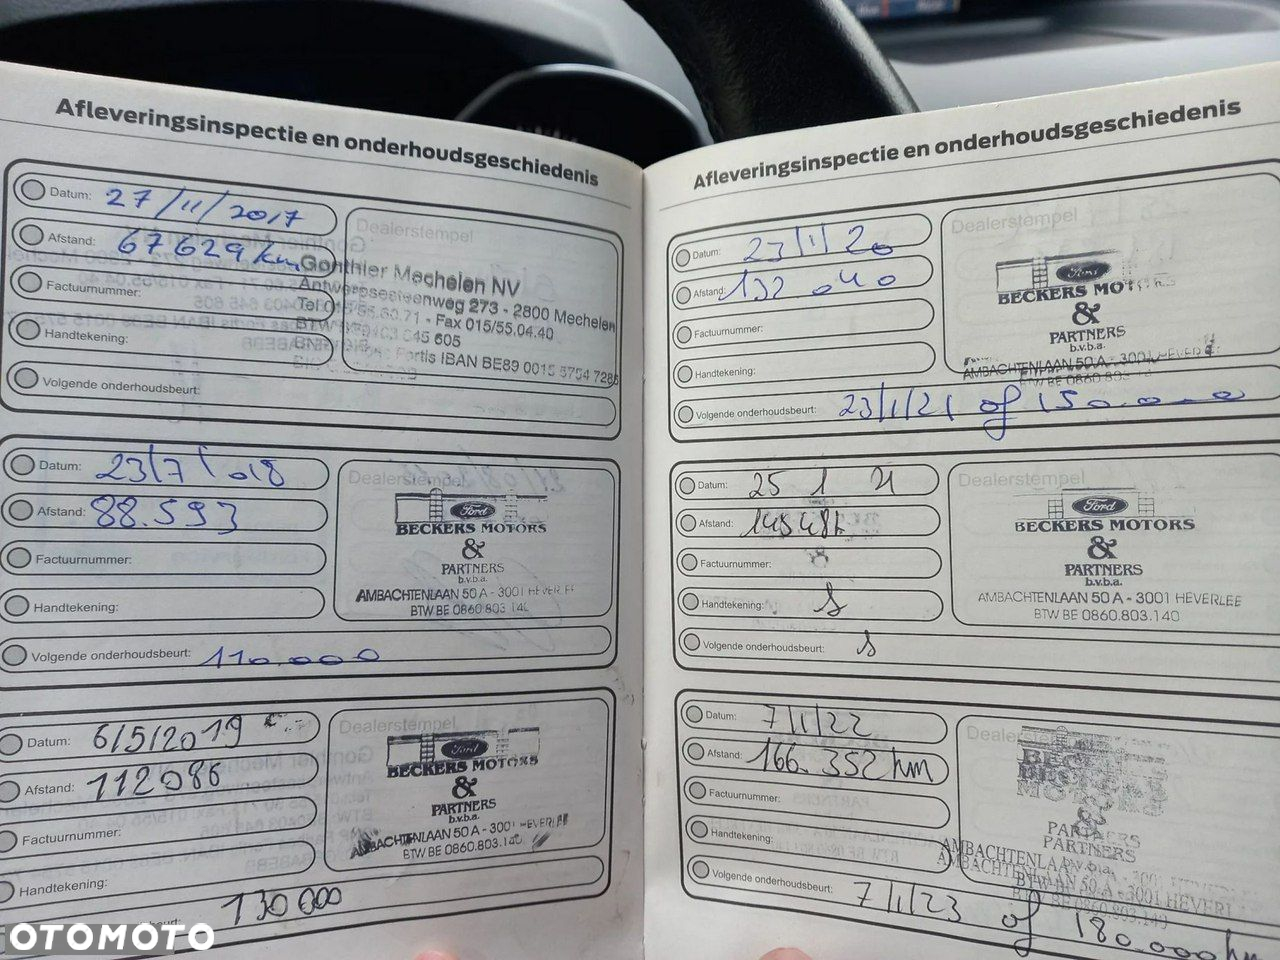 Afleveringsinspectie en onderhoudsgeschiedenis
Datum: 27/11/2017
Afstand: 67629 km
Factuurnummer:
Handtekening:
Volgende onderhoudsbeurt:
Dealerstempel
Gonthier Mechelen NV
Antwerpsesteenweg 273 - 2800 Mechelen
Fax 015/55.04.40
Fortis IBAN BE89 0015 5754
Datum: 23/7/018
Afstand: 88.593
Factuurnummer:
Handtekening:
Volgende onderhoudsbeurt: 110.000
Dealerstempel
Ford
BECKERS MOTORS
&
PARTNERS
b.v.b.a.
AMBACHTENLAAN 50 A - 3001 HEVERLEE
BTW BE 0860.803.140
Datum: 6/5/2019
Afstand: 112086
Factuurnummer:
Handtekening:
130 000
Dealerstempel
Ford
BECKERS MOTORS
&
PARTNERS
b.v.b.a.
AMBACHTENLAAN 50 A - 3001 HEVERLEE
BTW BE 0860.803.140
Afleveringsinspectie en onderhoudsgeschiedenis
Datum: 23/1/20
Afstand: 132.040
Factuurnummer:
Handtekening:
Volgende onderhoudsbeurt: 23/1/21 of 150.000
Dealerstempel
Ford
BECKERS MOTORS
&
PARTNERS
b.v.b.a.
AMBACHTENLAAN 50 A - 3001 HEVERLEE
BTW BE 0860.803.140
Datum: 25 1 21
Afstand:
Factuurnummer:
Handtekening:
Volgende onderhoudsbeurt:
Dealerstempel
Ford
BECKERS MOTORS
&
PARTNERS
b.v.b.a.
AMBACHTENLAAN 50 A - 3001 HEVERLEE
BTW BE 0860.803.140
Datum: 7/1/22
Afstand: 166.352 km
Factuurnummer:
Handtekening:
Volgende onderhoudsbeurt: 7/1/23 of 180.000 km
Dealerstempel
BECKERS
MOTORS
&
PARTNERS
b.v.b.a.
AMBACHTENLAAN 50 A - 3001 HEVERLEE
BTW BE 0860.803.140
OTOMOTO